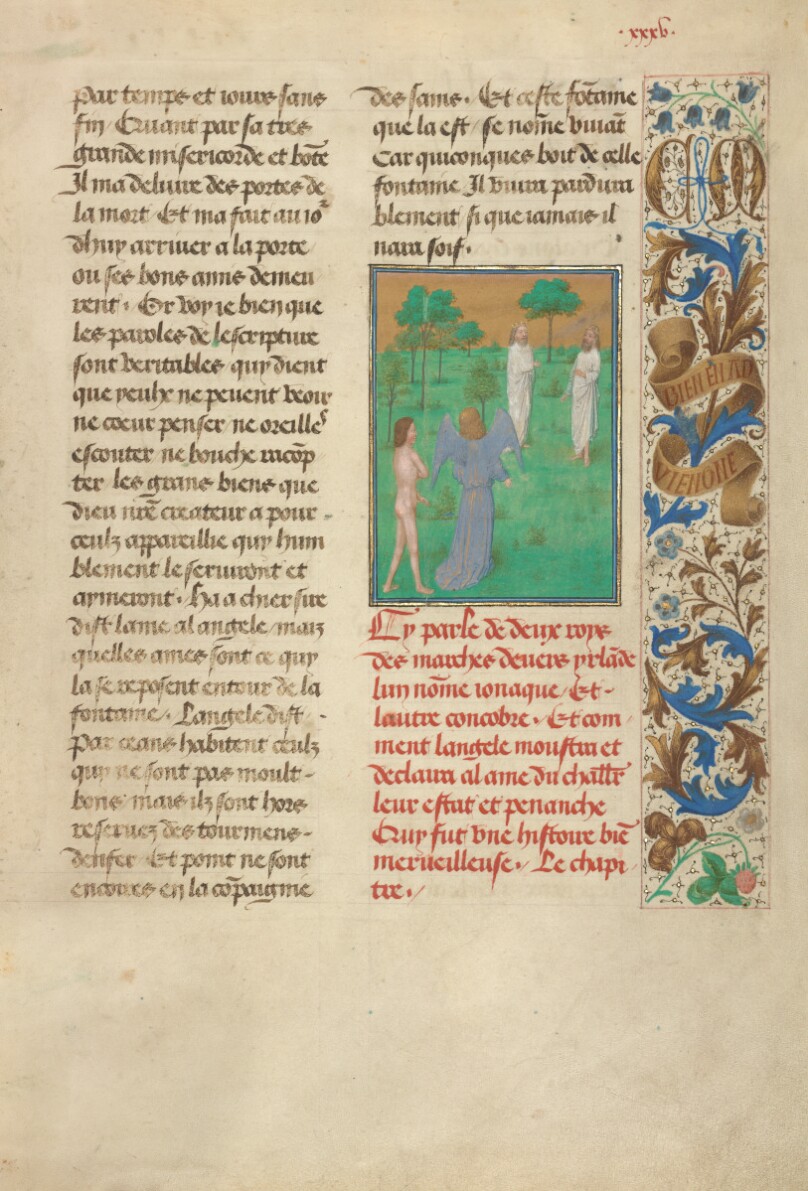 .xxxv.
par temps et iours sans
fin Cuvant par sa tres
grande misericorde et bōte
Il ma delivre des portes de
la mort Et ma fait au io^r
dhuy arriver a la porte
ou ses bons amis demeu
rent. Or voy ie bien que
les paroles de lescripture
sont veritables quy dient
que yeulx ne peuent veoir
ne coeur penser ne oreilles
escouter ne bouche racōp
ter les grans biens que
dieu nr̄e createur a pour -
ceulz appareillie quy hum
blement le serviront et
aymeront. Ha a chier sire
dist lame al angele maiz
quelles ames sont ce quy
la se reposent entour de la
fontaine. Langele dist -
Par ceans habitent ceulz
quy ne sont pas moult -
bons mais ilz sont hors
reservez des tourmens -
denfer Et point ne sont
encores en la cōpaignie
des sains. Et ceste fōtaine
que la est se nōme vivāt
Car quiconques boit de celle
fontaine Il vivra pardura
blement si que iamais il
nara soif.
Cy parle de deux roys
des marches devers yrlāde
lun nōme ionaque Et -
lautre concobre. Et com
ment langele moustra et
declaira al ame du challr̄
leur estat et penanche
Quy fut une histoire biē
merveilleuse. Le chapi
tre.
CM
BIEN EN AD
VIENGNE